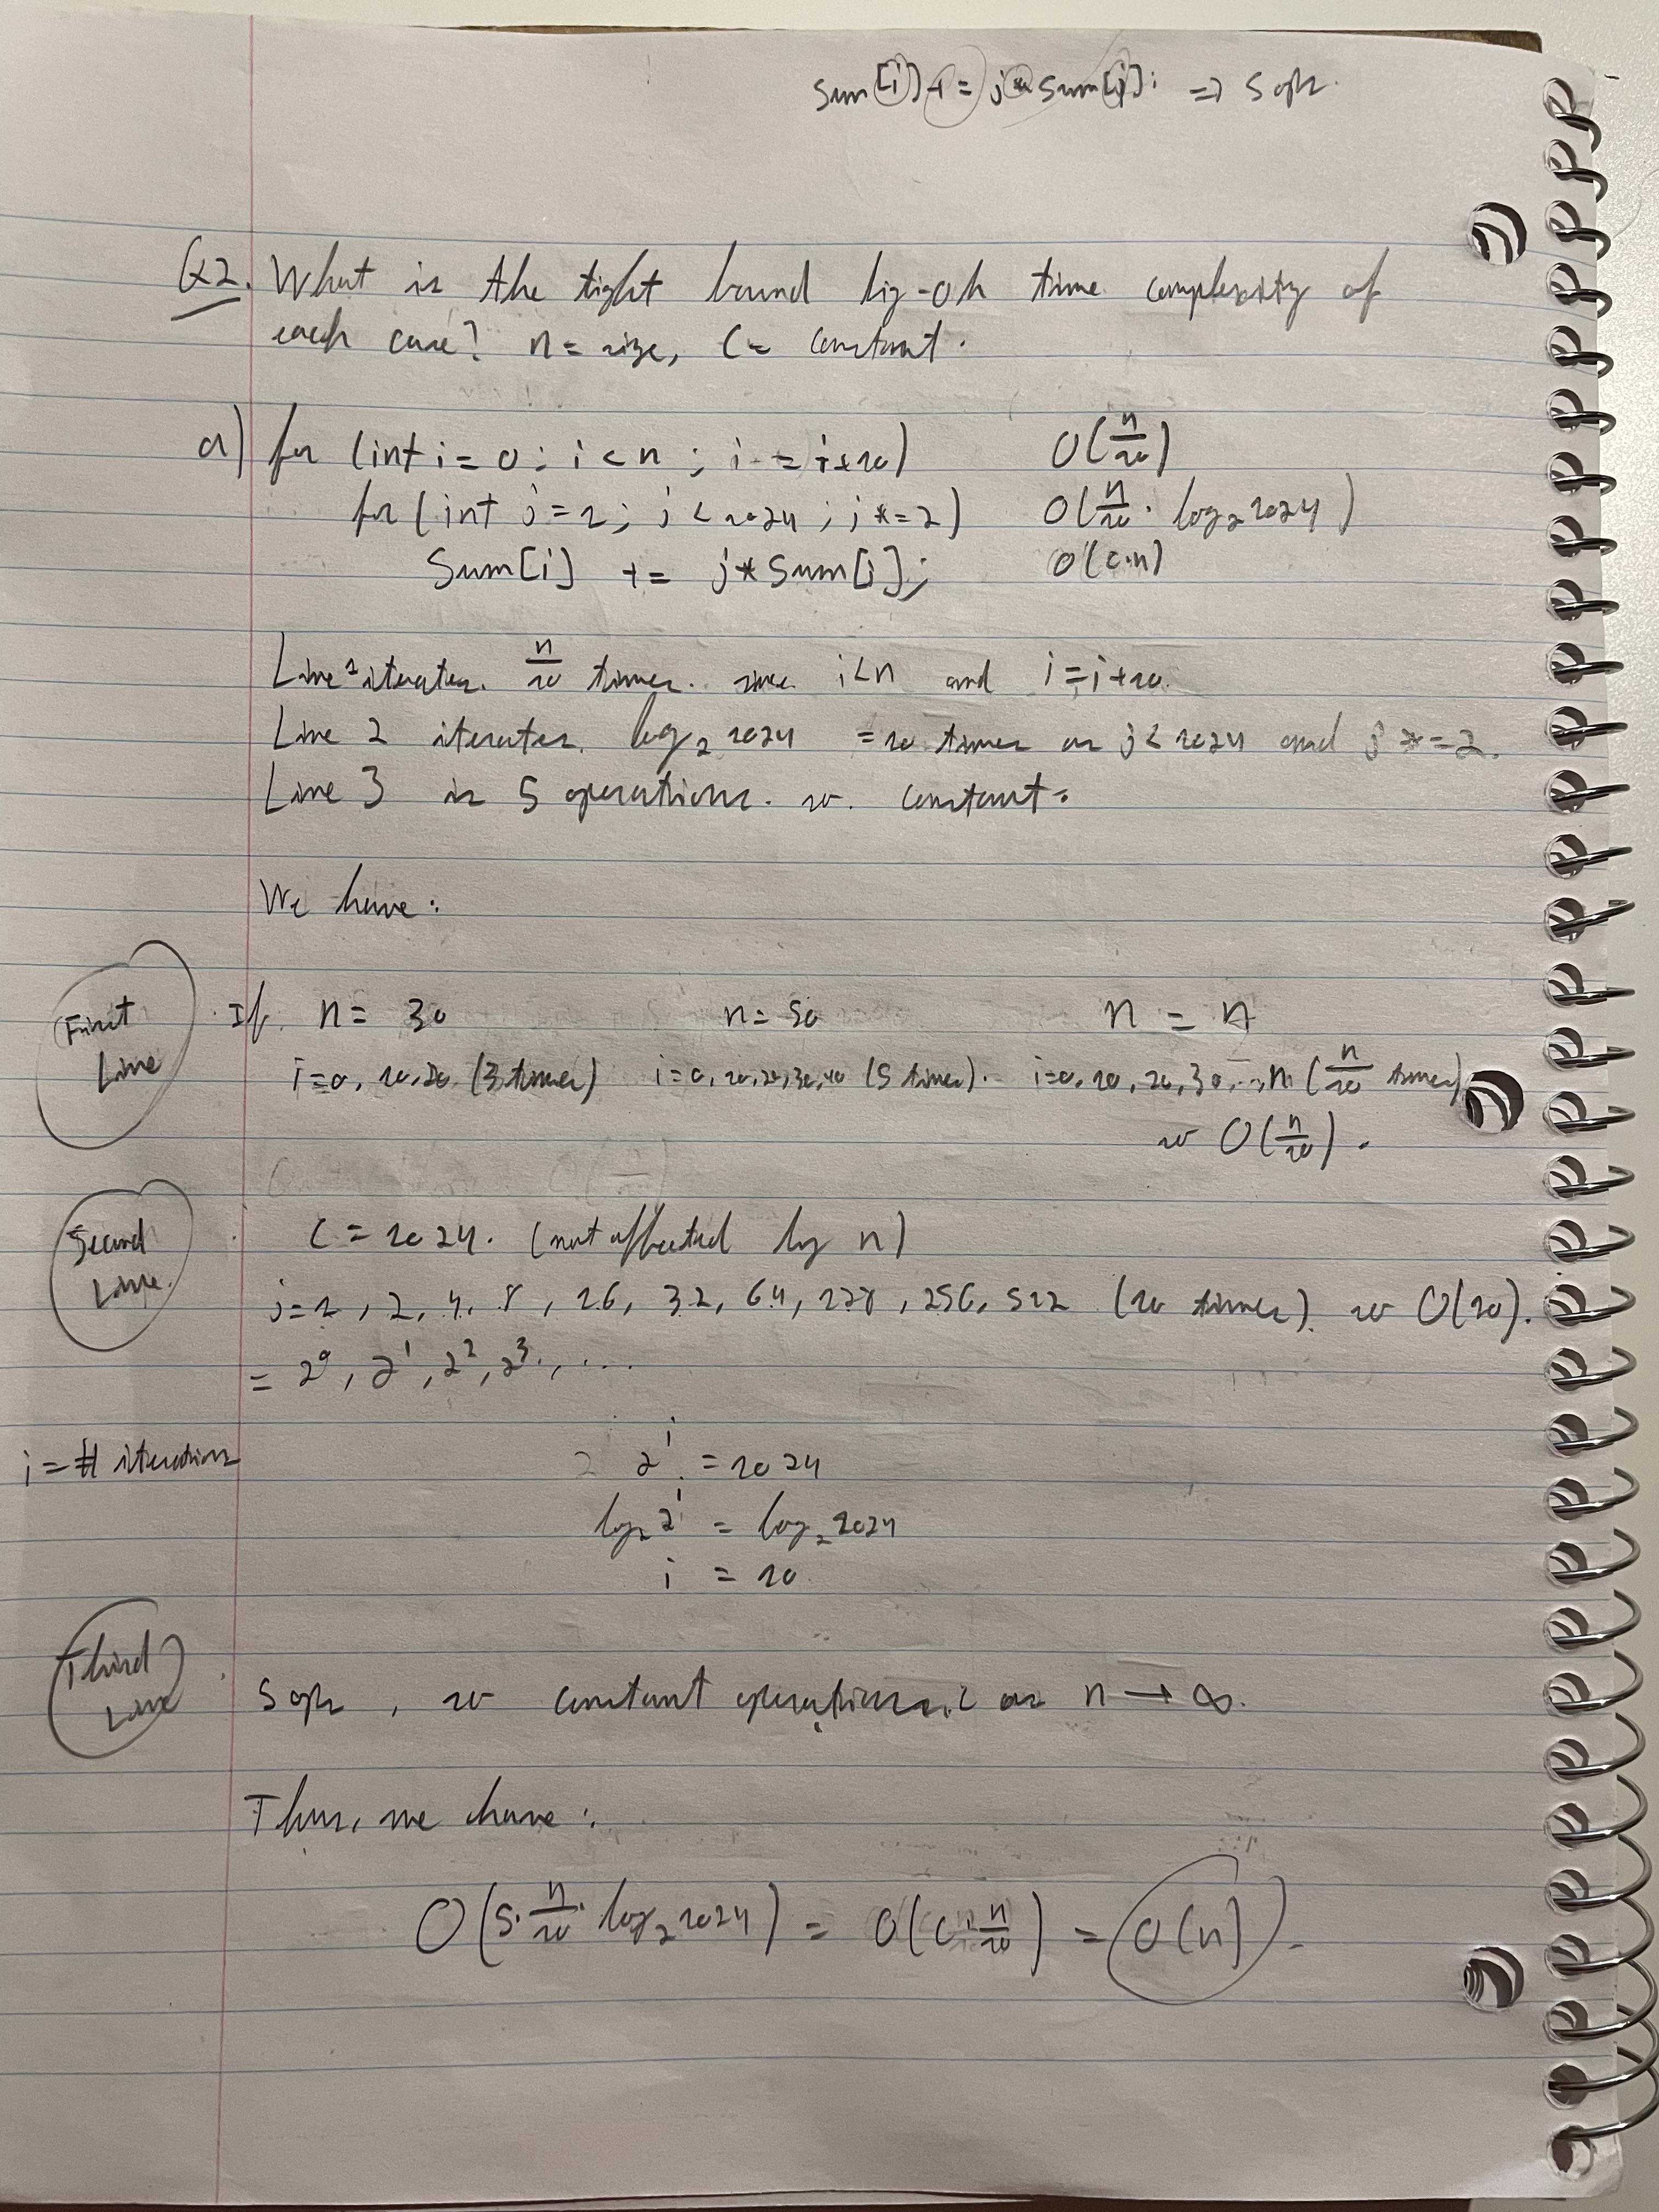 Sum[i] += j * Sum[j]; => 5 ops.
Q2. What is the tight bound big-oh time complexity of
each case? n = size, C = constant.
a) for (int i = 0; i < n; i = i+10) O(n/10)
for (int j = 1; j < 1024; j *= 2) O(n/10 · log₂ 1024)
Sum[i] += j * Sum[j]; O(c·n)
Line 1 iterates n/10 times since i < n and i = i+10.
Line 2 iterates log₂ 1024 = 10 times as j < 1024 and j *= 2.
Line 3 is 5 operations. so constant.
We have:
First Line
If n = 30 n = 50 n = n
i=0, 10, 20 (3 times) i=0, 10, 20, 30, 40 (5 times). i=0, 10, 20, 30, ..., n (n/10 times)
so O(n/10).
Second Line.
C = 1024. (not affected by n)
j = 1, 2, 4, 8, 16, 32, 64, 128, 256, 512 (10 times). so O(10).
= 2⁰, 2¹, 2², 2³, ...
i = # iterations
2ⁱ = 1024
log₂ 2ⁱ = log₂ 1024
i = 10
Third Line
5 ops, so constant operations as n → ∞.
Thus, we have:
O(5 · n/10 · log₂ 1024) = O(C · n/10) = O(n).